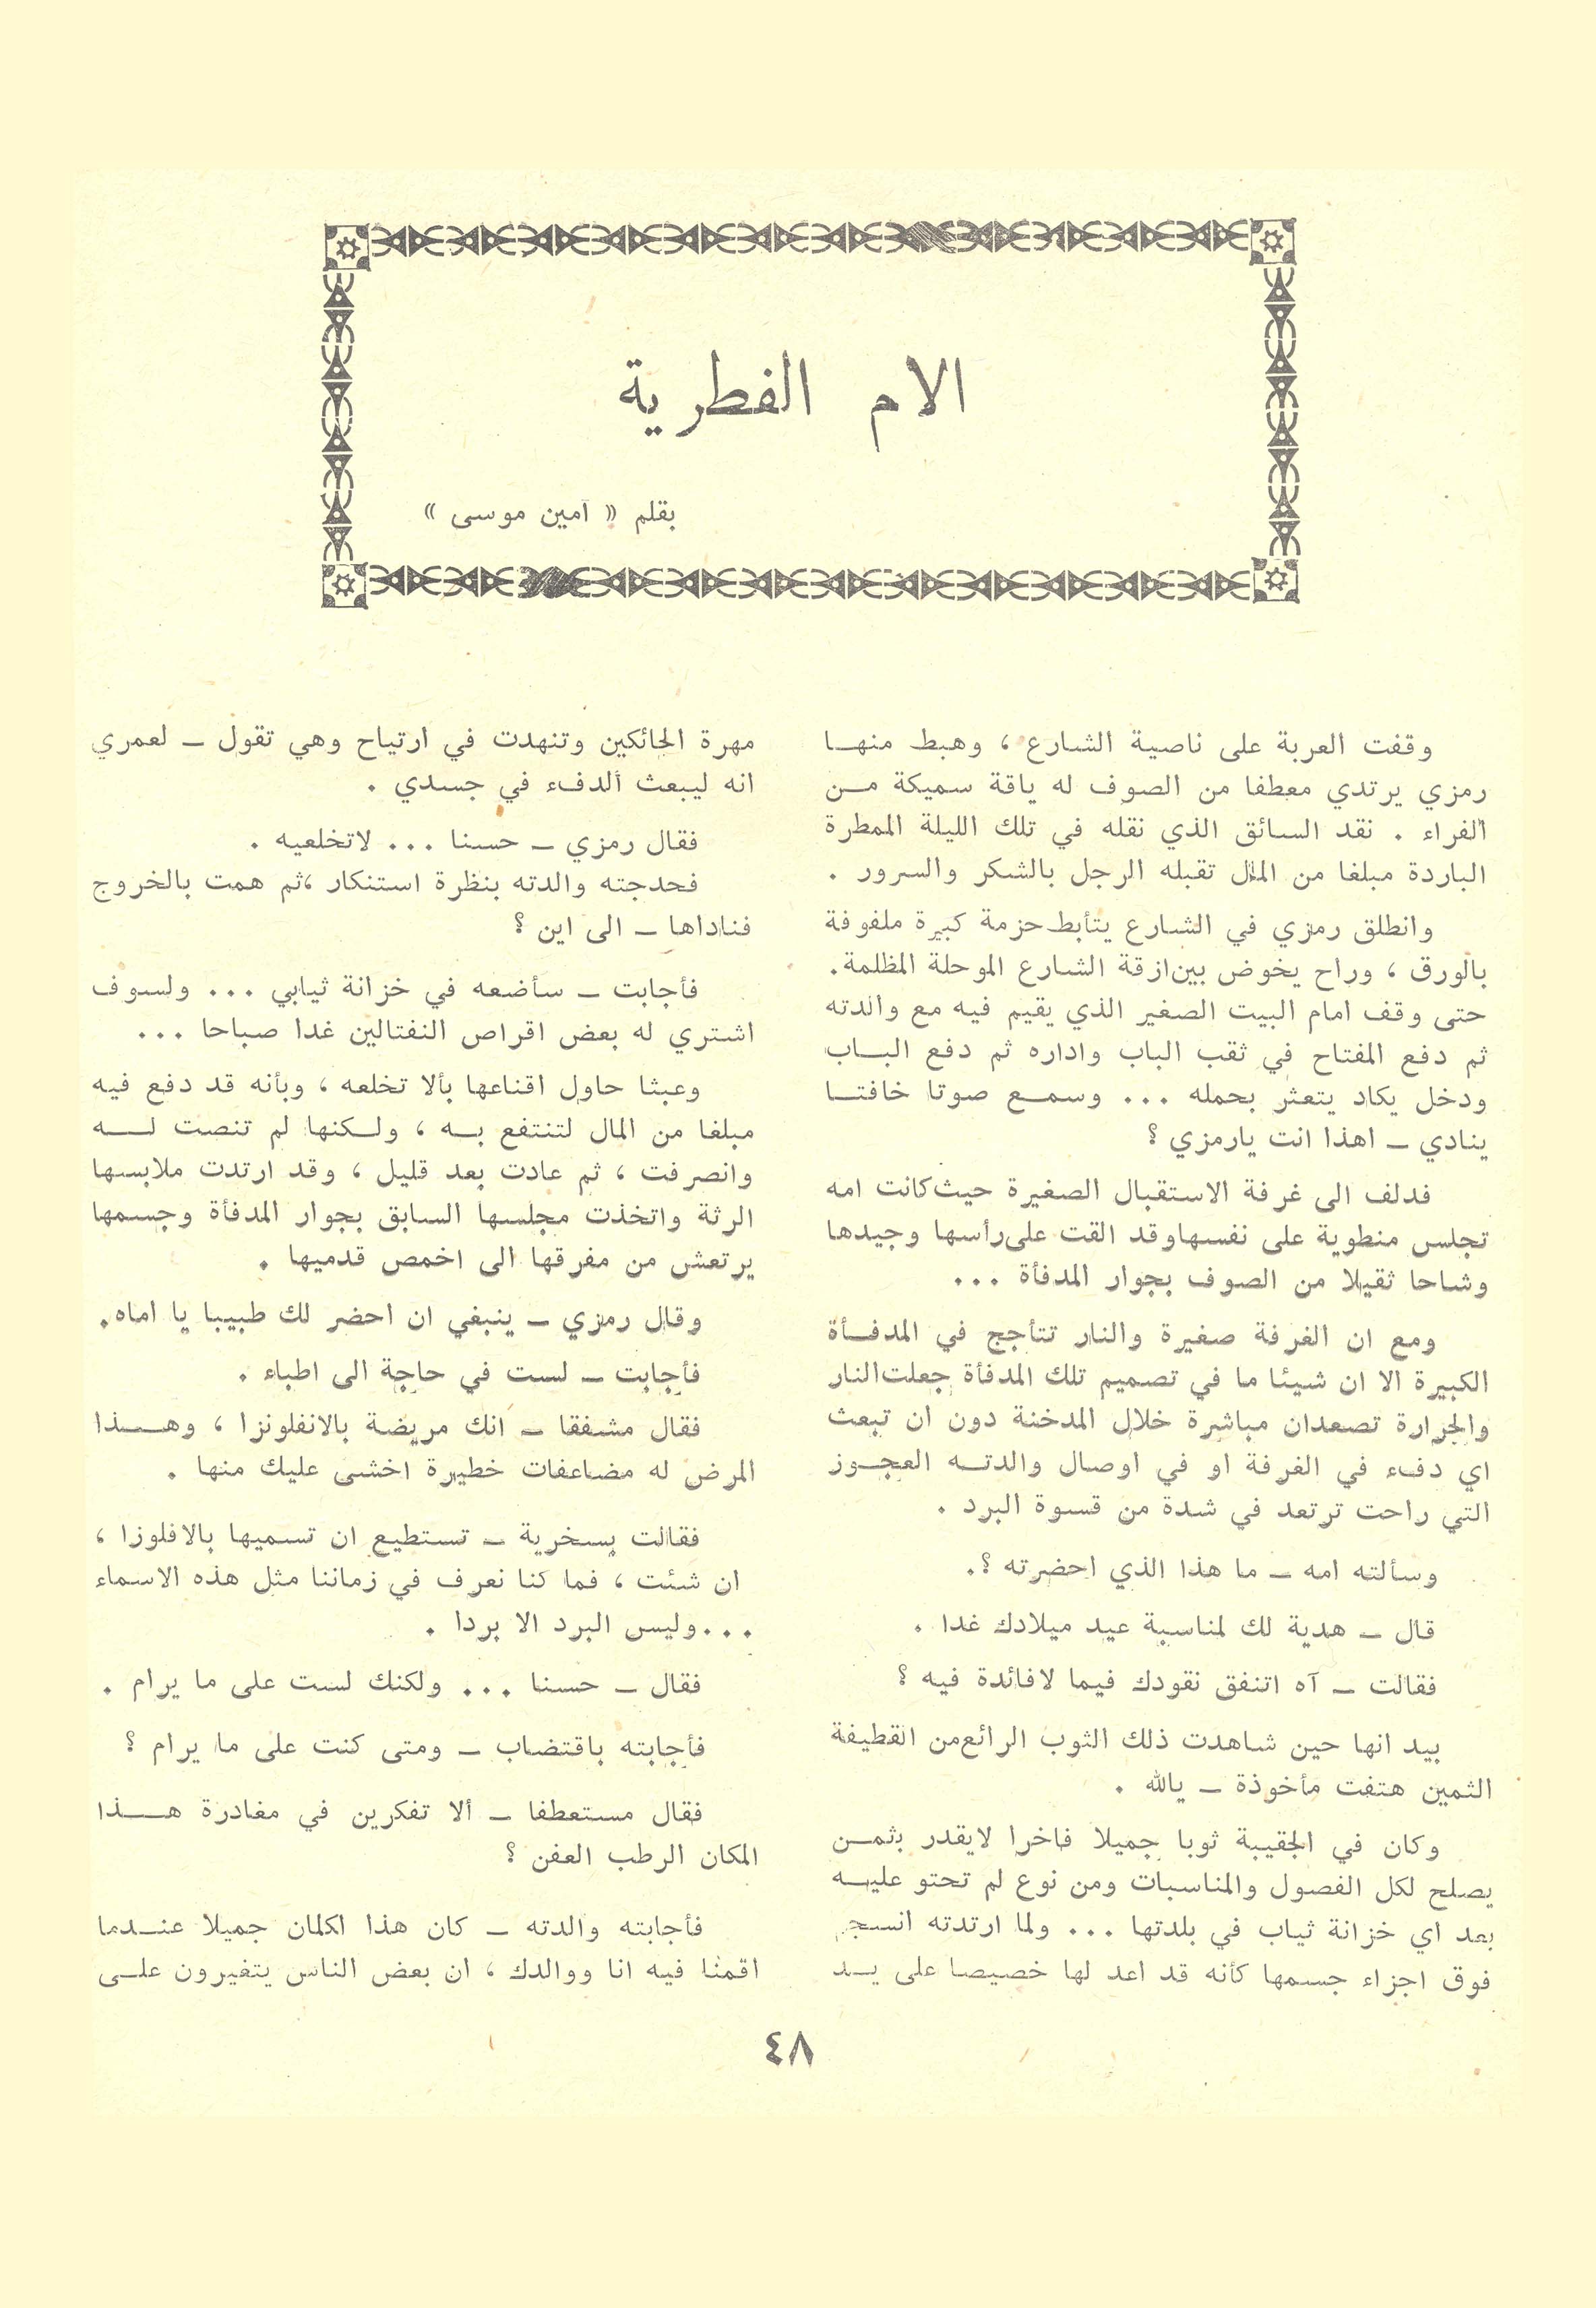 الام الفطرية
بقلم « امين موسى »
وقفت العربة على ناصية الشارع ، وهبط منهـا
رمزي يرتدي معطفا من الصوف له ياقة سميكة مـن
الفراء . نقد السائق الذي نقله في تلك الليلة الممطرة
الباردة مبلغا من المال تقبله الرجل بالشكر والسرور .
وانطلق رمزي في الشارع يتأبط حزمة كبيرة ملفوفة
بالورق ، وراح يخوض بين ازقة الشارع الموحلة المظلمة .
حتى وقف امام البيت الصغير الذي يقيم فيه مع والدته
ثم دفع المفتاح في ثقب الباب واداره ثم دفع البـاب
ودخل يكاد يتعثر بحمله ... وسمـع صوتا خافتـا
ينادي ـ اهذا انت يارمزي ؟
فدلف الى غرفة الاستقبال الصغيرة حيث كانت امه
تجلس منطوية على نفسها وقد القت على رأسها وجيدها
وشاحا ثقيلا من الصوف بجوار المدفأة ...
ومع ان الغرفة صغيرة والنار تتأجج في المدفـأة
الكبيرة الا ان شيئا ما في تصميم تلك المدفأة جعلت النار
والحرارة تصعدان مباشرة خلال المدخنة دون ان تبعث
اي دفء في الغرفة او في اوصال والدتـه العجـوز
التي راحت ترتعد في شدة من قسوة البرد .
وسألته امه ـ ما هذا الذي احضرته ؟.
قال ـ هدية لك لمناسبة عيد ميلادك غدا .
فقالت ـ آه اتنفق نقودك فيما لافائدة فيه ؟
بيد انها حين شاهدت ذلك الثوب الرائع من القطيفة
الثمين هتفت مأخوذة ـ يالله .
وكان في الحقيبة ثوبا جميلا فاخرا لايقدر بثمـن
يصلح لكل الفصول والمناسبات ومن نوع لم تحتو عليـه
بعد اي خزانة ثياب في بلدتها ... ولما ارتدته انسجم
فوق اجزاء جسمها كأنه قد اعد لها خصيصا على يـد
مهرة الحائكين وتنهدت في ارتياح وهي تقول ـ لعمري
انه ليبعث ألدفء في جسدي .
فقال رمزي ـ حسنا ... لاتخلعيه .
فحدجته والدته بنظرة استنكار ،ثم همت بالخروج
فناداها ـ الى اين ؟
فأجابت ـ سأضعه في خزانة ثيابي ... ولسوف
اشتري له بعض اقراص النفتالين غدا صباحا ...
وعبثا حاول اقناعها بألا تخلعه ، وبأنه قد دفع فيه
مبلغا من المال لتنتفع بـه ، ولـكنها لم تنصت لـــه
وانصرفت ، ثم عادت بعد قليل ، وقد ارتدت ملابسها
الرثة واتخذت مجلسها السابق بجوار المدفأة وجسمها
يرتعش من مفرقها الى اخمص قدميها .
وقال رمزي ـ ينبغي ان احضر لك طبيبا يا اماه.
فأجابت ـ لست في حاجة الى اطباء .
فقال مشفقا ـ انك مريضة بالانفلونزا ، وهـــذا
المرض له مضاعفات خطيرة اخشى عليك منها .
فقالت بسخرية ـ تستطيع ان تسميها بالافلوزا ،
ان شئت ، فما كنا نعرف في زماننا مثل هذه الاسماء
...وليس البرد الا بردا .
فقال ـ حسنا ... ولكنك لست على ما يرام .
فأجابته باقتضاب ـ ومتى كنت على ما يرام ؟
فقال مستعطفا ـ ألا تفكرين في مغادرة هـــذا
المكان الرطب العفن ؟
فأجابته والدته ـ كان هذا اكلمان جميلا عنـدما
اقمنا فيه انا ووالدك ، ان بعض الناس يتغيرون علـى
٤٨